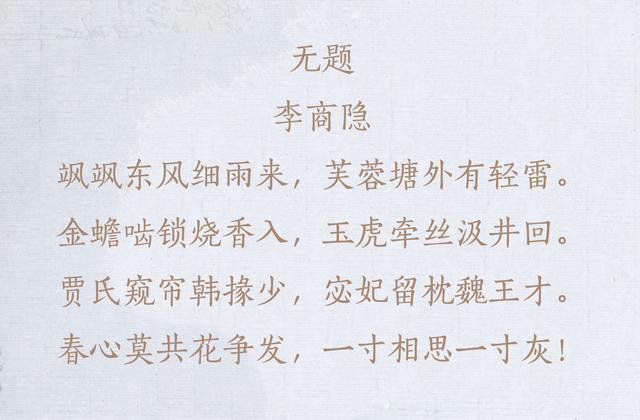 无题
李商隐
飒飒东风细雨来，芙蓉塘外有轻雷。
金蟾啮锁烧香入，玉虎牵丝汲井回。
贾氏窥帘韩掾少，宓妃留枕魏王才。
春心莫共花争发，一寸相思一寸灰！